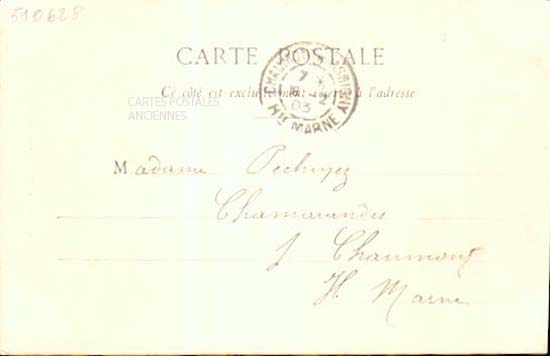 510628
CARTE POSTALE
Ce côté est exclusivement réservé à l'adresse
CARTES POSTALES
ANCIENNES
7
18
03
Hte MARNE
Madame Pechinez
Chamarandes
Chaumont
H. Marne